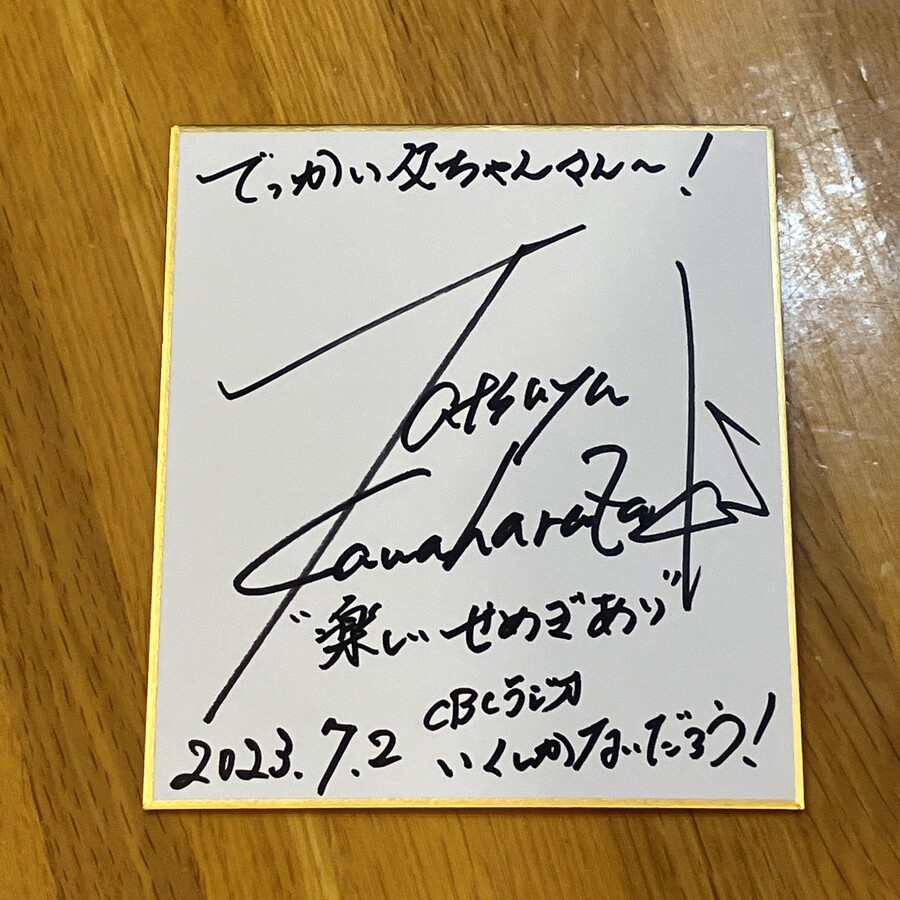 でっかい父ちゃんさん〜!
Tatsuya
Kawaharazaki
"楽しいせめぎあり"
2023.7.2 CBCラジオ
いくしかないだろう!